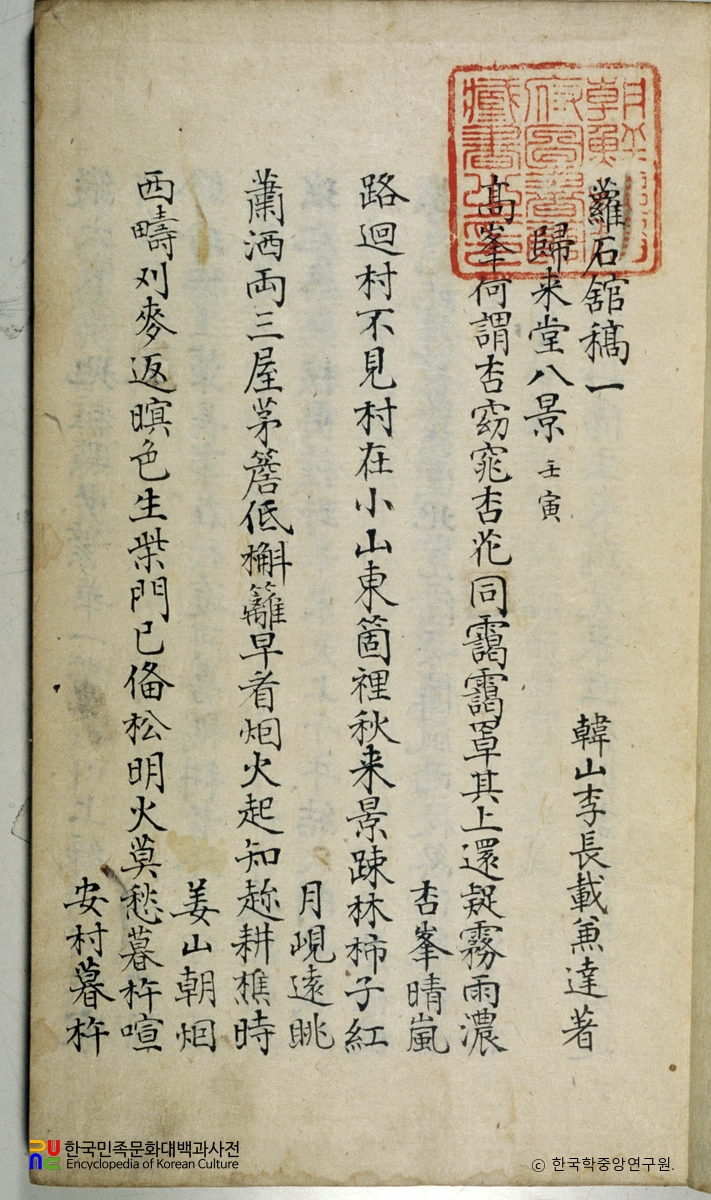 蘿石舘稿一
韓山李長載兼達著
歸来堂八景 壬寅
高峯何謂杏窈窕杏花同靄靄罩其上還疑霧雨濃
杏峯晴嵐
路迴村不見村在小山東箇裡秋来景疎林柿子紅
月峴遠眺
蕭洒両三屋茅簷低槲籬早看烟火起知趂耕樵時
姜山朝烟
西疇刈麥返暝色生柴門已俻松明火莫愁暮杵喧
安村暮杵
한국민족문화대백과사전
Encyclopedia of Korean Culture
© 한국학중앙연구원.